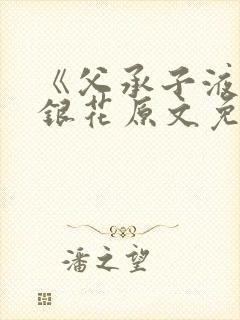 《父承子液
銀花原文免
潘之望